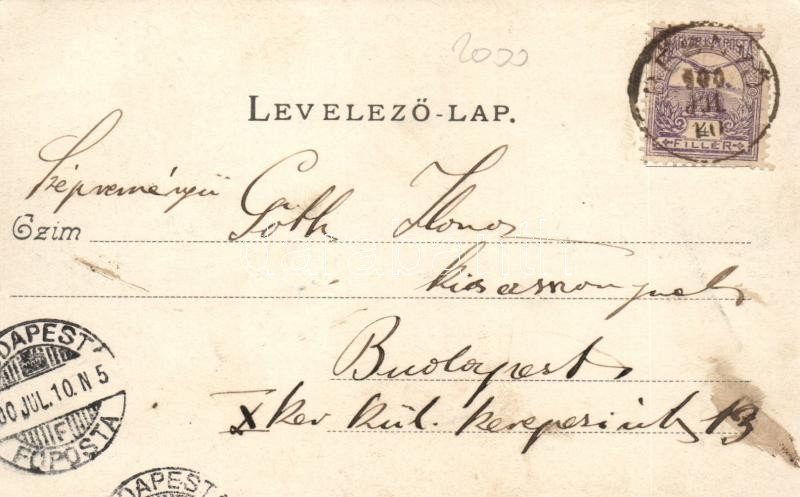 2000
MAGYAR KIR. POSTA
900.
JUL
10
FILLÉR
LEVELEZŐ-LAP.
Szépreményű
Czim Góth Ilona
kisasszonynak
Budapest
X ker kül. kerepesi út 13
BUDAPEST
00 JUL. 10. N 5
F
FŐPOSTA
BUDAPEST